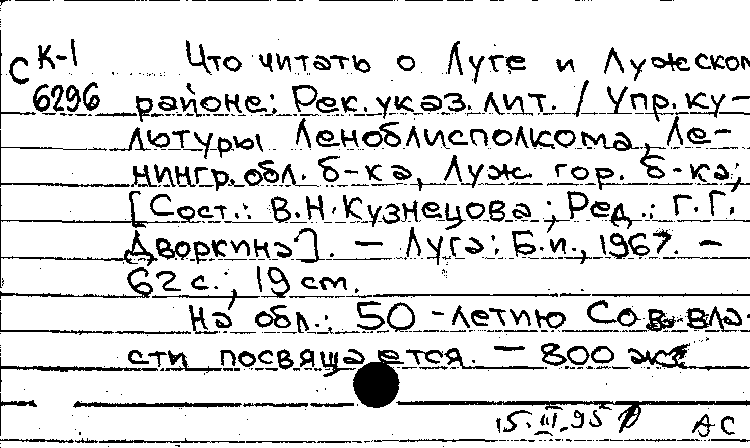 С К-1 Что читать о Луге и Лужском
6296 районе: Рек. указ. лит. / Упр. ку-
льтуры Леноблисполкома, Ле-
нингр. обл. б-ка, Луж. гор. б-ка;
[Сост.: В.Н. Кузнецова; Ред.: Г.Г.
Дворкина]. — Луга: Б.и., 1967. —
62 с.; 19 см.
На обл.: 50-летию Сов. вла-
сти посвящается. — 800 экз
15.III.95 АС